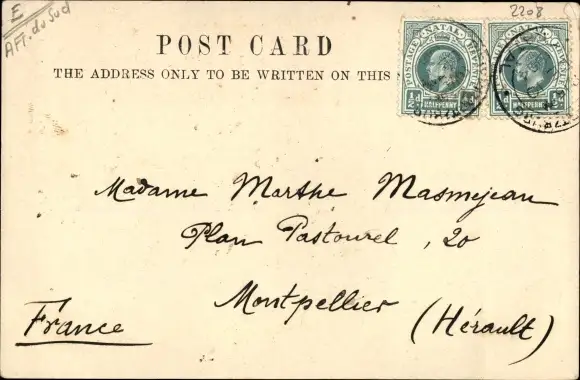 E
Afr. du Sud
2208
POST CARD
THE ADDRESS ONLY TO BE WRITTEN ON THIS
POSTAGE NATAL REVENUE
½d HALFPENNY
POSTAGE NATAL REVENUE
HALFPENNY ½d
Madame Marthe Masmejean
Plan Pastourel, 20
Montpellier
(Hérault)
France